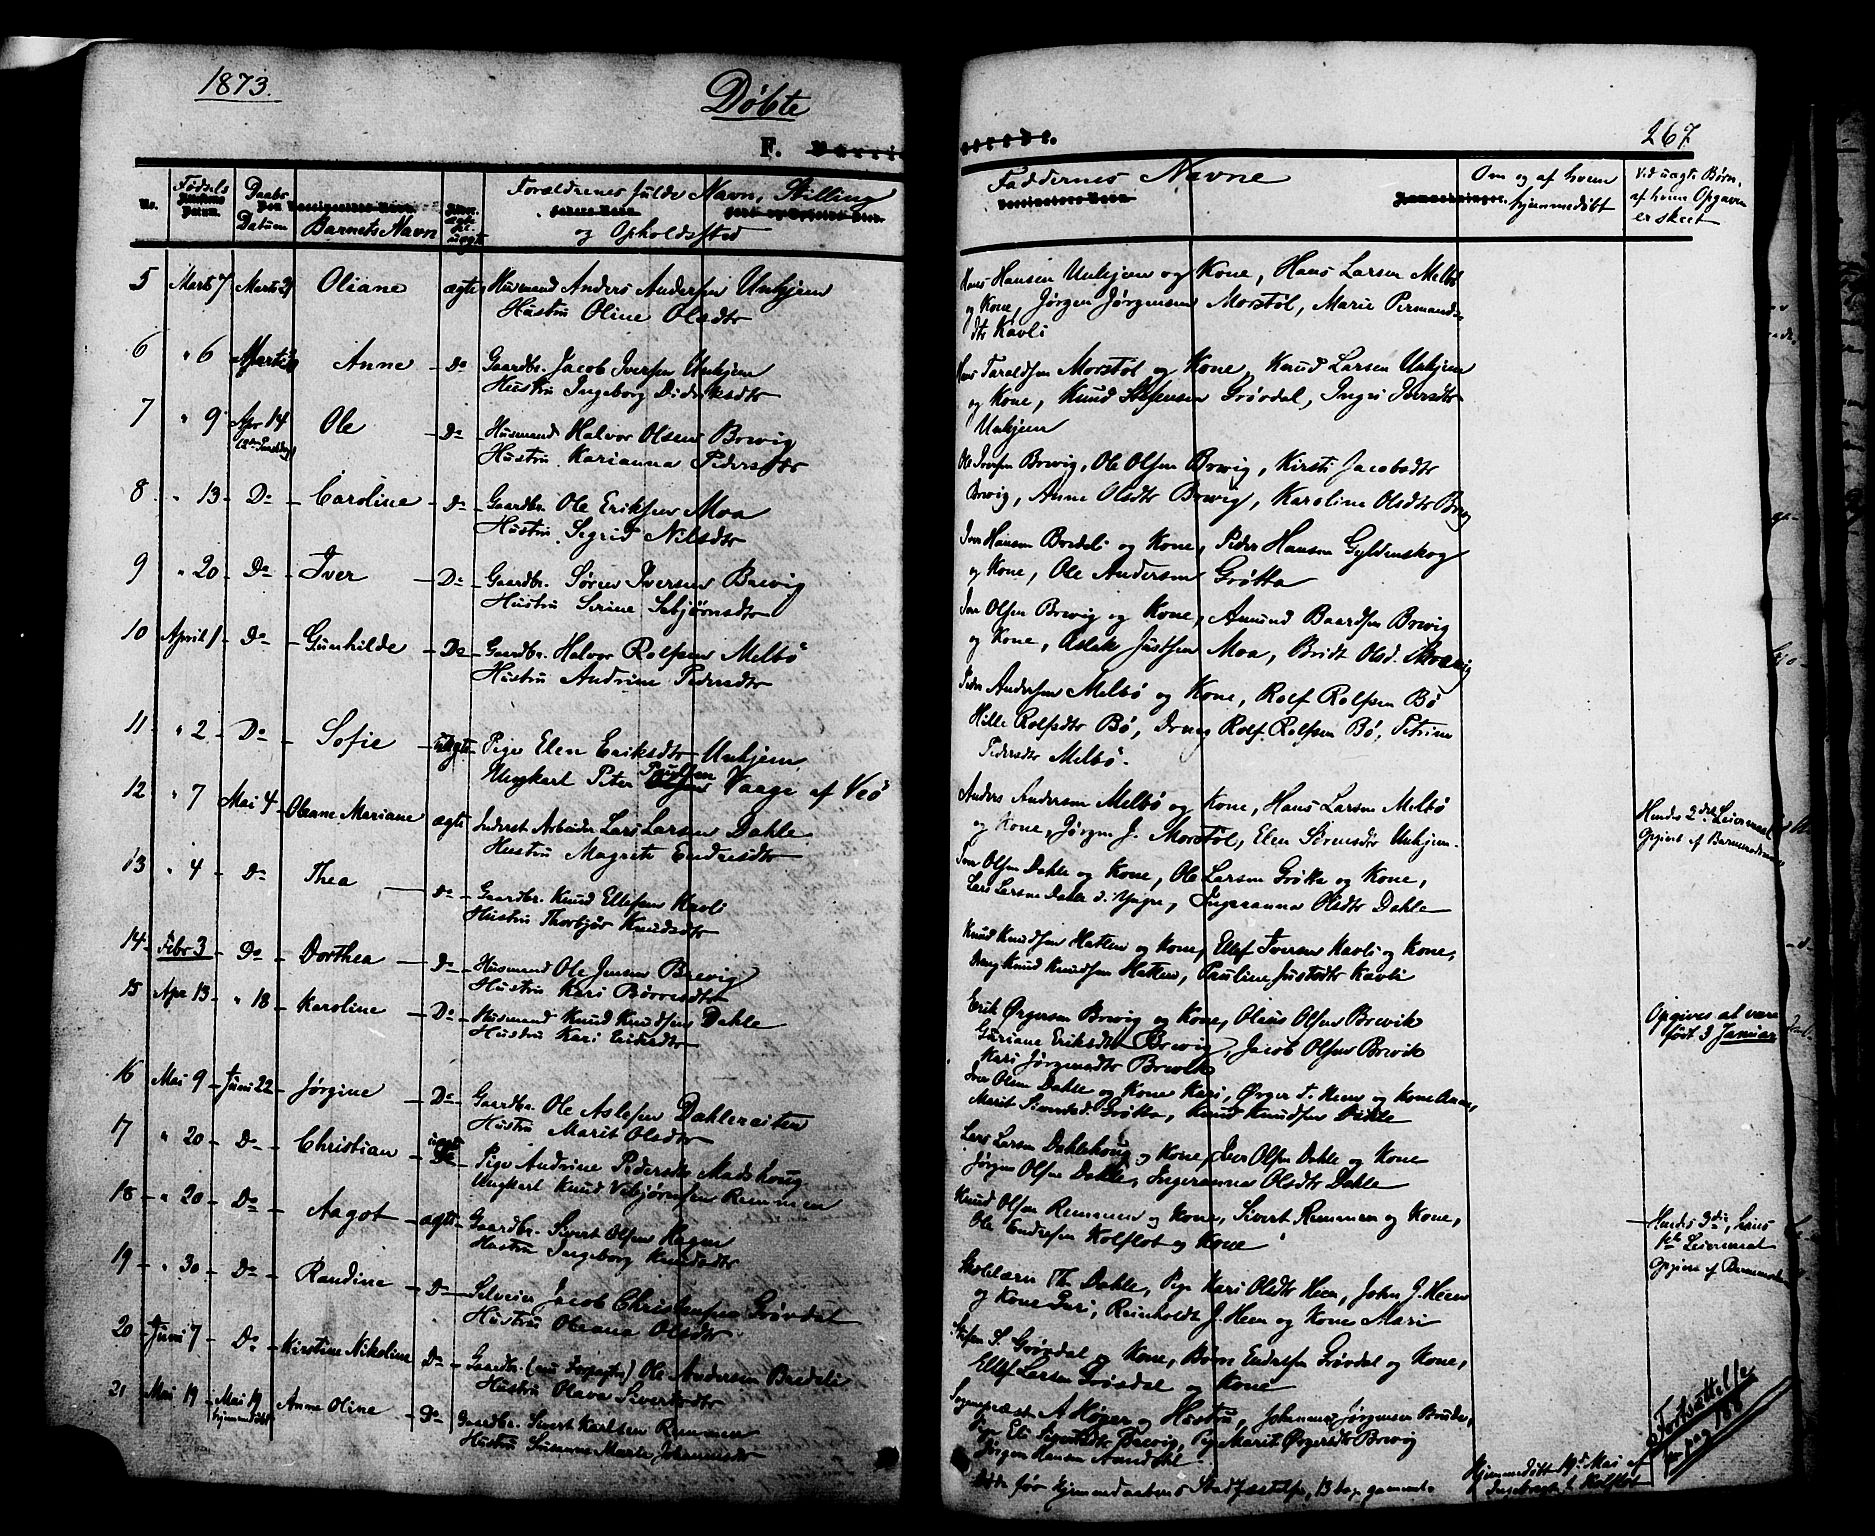 1873.
Døbte
F.
267
No.
Fødsels Datum.
Daabs Datum
Barnets Navn
Forældrenes fulde Navn, Stilling
og Opholdssted
Faddernes Navne
Om og af hvem
hjemmedøbt
Ved uægte Børn,
af hvem Opgaven
er skeet
5 Marts 7 Oliane ægte Husmand Anders Andersen Unhjem
Hustru Oline Olsdtr
Hans Hansen Unhjem og Kone, Hans Larsen Melbø
og Kone, Jørgen Jørgensen Morstøl, Marie
dtr Kavli
6 " 6 Anne Do Gaardbr. Jacob Iversen Unhjem
Hustru Ingeborg Didriksdtr
Hans Taraldsen Morstøl og Kone, Knud Larsen Unhjem
og Kone, Knud Stefensen Grøvdal, Ingri Iversdtr
Unhjem
7 " 9 Apr 14 Ole Do Husmand Halvor Olsen Brevig
Hustru Karianna Pedersdtr
Ole Iversen Brevig, Ole Olsen Brevig, Kirsti Jacobsdtr
Brevig, Anne Olsdtr Brevig, Karoline Olsdtr Brevig
8 " 13 Do Caroline Do Gaardbr. Ole Eriksen Moa
Hustru Sigrid Nilsdtr
Iver Hansen Bredeli og Kone, Peder Hansen Gyldenskog
og Kone, Ole Andersen Grøtta
9 " 20 Do Iver Do Gaardbr. Søren Iversen Brevig
Hustru Serine Sebjørnsdtr
Iver Olsen Brevig og Kone, Amund Baardsen Brevig
og Kone, Aslak Justsen Moa, Bridt Olsd. Brevig
10 April 1 Do Gunhilde Do Gaardbr. Halvor Rolfsen Melbø
Hustru Andrine Pedersdtr
Peder Andersen Melbø og Kone, Rolf Rolfsen Bø
Hille Rolfsdtr Bø, Dreng Rolf Rolfsen Bø, Petrine
Pedersdtr Melbø.
11 " 2 Do Sofie uægte Pige Elen Eriksdtr Unhjem
Ungkarl Peter Paulsen Vaage af Veø
Anders Andersen Melbø og Kone, Hans Larsen Melbø
og Kone, Jørgen J. Morstøl, Elen Sørensdtr Unhjem.
Hendes 2det Leiermaal
Opgivet af Barnemoderen
12 " 7 Mai 4 Oleane Mariane ægte Inderst Arbeider Lars Larsen Dahle
Hustru Magrete Endresdtr
Iver Olsen Dahle og Kone, Ole Larsen Grøtta og Kone,
Lars Larsen Dahle d. Yngre, Ingeranna Olsdtr Dahle
13 " 4 Do Thea Do Gaardbr. Knud Ellefsen Kavli
Hustru Thorbjør Knudsdtr
Knud Knudsen Hatlen og Kone, Ellef Iversen Kavli og Kone,
Dreng Knud Knudsen Hatlen, Pauline Justsdtr Kavli
14 Febr 3 Do Dorthea Do Husmand Ole Jensen Brevig
Hustru Kari Børresdtr
Erik Ørgersen Brevig og Kone, Oleus Olsen Brevik
Guriane Eriksdtr Brevig, Jacob Olsen Brevik
Kari Jørgensdtr Brevik
Opgives at være
født 3 Januar
15 Apr 13 " 18 Karoline Do Husmand Knud Knudsen Dahle
Hustru Kari Eriksdtr
Iver Olsen Dahle og Kone Kari, Ørger T. Heen og Kone Anne,
Marit Siversd. Grøtta, Knud Knudsen Dahle
16 Mai 9 Juni 22 Jørgine Do Gaardbr. Ole Aslesen Dahlereiten
Hustru Marit Olsdtr
Lars Larsen Dahlehoug og Kone, Iver Olsen Dahle og Kone
Jørgen Olsen Dahle, Ingeranna Olsdtr Dahle
17 " 20 Do Christian uægte Pige Andrine Pedersdtr Madshoug
Ungkarl Knud Vebjørnsen Remmen
Knud Olsen Remmen og Kone, Sivert Remmen og Kone,
Ole Endresen Kolflot og Kone
Hendes 3die, hans
1ste Leiermaal
Opgivet af Barnemoderen
18 " 20 Do Aagot ægte Gaardbr. Sivert Olsen Hagen
Hustru Ingeborg Knudsdtr
Skolelærer Th. Dahle, Pige Kari Olsdtr Heen, John J. Heen
og Kone Guri, Reinholdt J. Heen og Kone Mari
19 " 30 Do Randine Do Selveier Jacob Christensen Grøvdal
Hustru Oleana Olsdtr
Stefen S. Grøvdal og Kone, Bjørn Endresen Grøvdal og Kone,
Ellef Larsen Grøvdal og Kone
20 Juni 7 Do Kirstine Nikoline Do Gaardbr. (nu Forpagter) Ole Andersen Bredeli
Hustru Olava Sivertsdtr
Sognepræst A Høyer og Hustru, Johannes Jørgensen Brude,
Pige Eli Brevig, Pige Marit Ørgersdtr Brevig
Jørgen Hansen
21 Mai 19 Mai 19 hjemmedøbt Anne Oline Do Gaardbr. Sivert Karlsen Remmen
Hustru Susanne Marie Johannesdtr
Døde før hjemmedaabens Stadfæstelse, 13 dage gammel.
Hjemmedøbt 19de Mai af
Ingebrigt Kolflot
Fortsættelse
pag 188